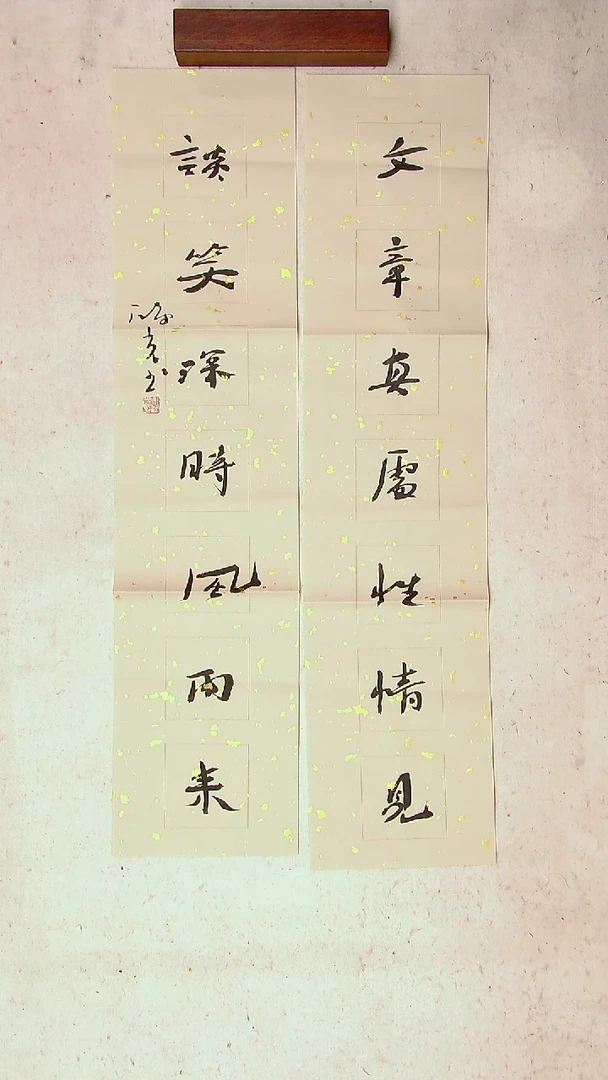 文章真處性情見
談笑深時風雨来